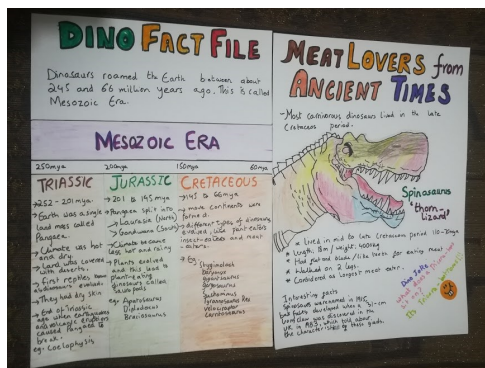 DINO FACT FILE
Dinosaurs roamed the Earth between about
245 and 66 million years ago. This is called
Mesozoic Era.
MESOZOIC ERA
250mya 200mya 150mya 60mya
TRIASSIC
→252 - 201 mya.
→Earth was a single
land mass called
Pangaea
→Climate was hot
and dry.
→Land was covered
with deserts.
→First reptiles
evolved.
→They had dry skin
→End of Triassic
age when earthquakes
and volcanic eruptions
caused Pangaea to
break.
eg: Coelophysis
JURASSIC
→201 to 145 mya
→Pangaea split into
Laurasia (North)
Gondwana (South)
→Climate became
less hot and rainy
→Plants evolved
and this lead to
plant-eating
dinosaurs called
sauropods
eg: Apatosaurus
Diplodocus
Brachiosaurus
CRETACEOUS
→145 to 66mya
→more continents were
formed.
→different types of dinosaurs
evolved, like plant eaters
insect eaters and meat
eaters.
→Eg
Baryonyx
Tyrannosaurus Rex
Velociraptor
MEAT LOVERS from
ANCIENT TIMES
-Most carnivorous dinosaurs lived in the late
Cretaceous period.
Spinosaurus
'thorn-
lizard'
* Lived in mid to late Cretaceous period
* Length: 18m / weight: 4000kg
* Walked on 2 legs.
* Considered as largest meat eater.
Interesting facts
Spinosaurus were named in
UK in 1983, which told about
the characteristics of these giants.
Dino Joke